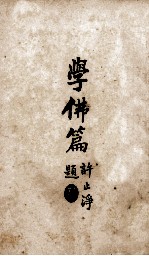 學佛篇
許止淨
題